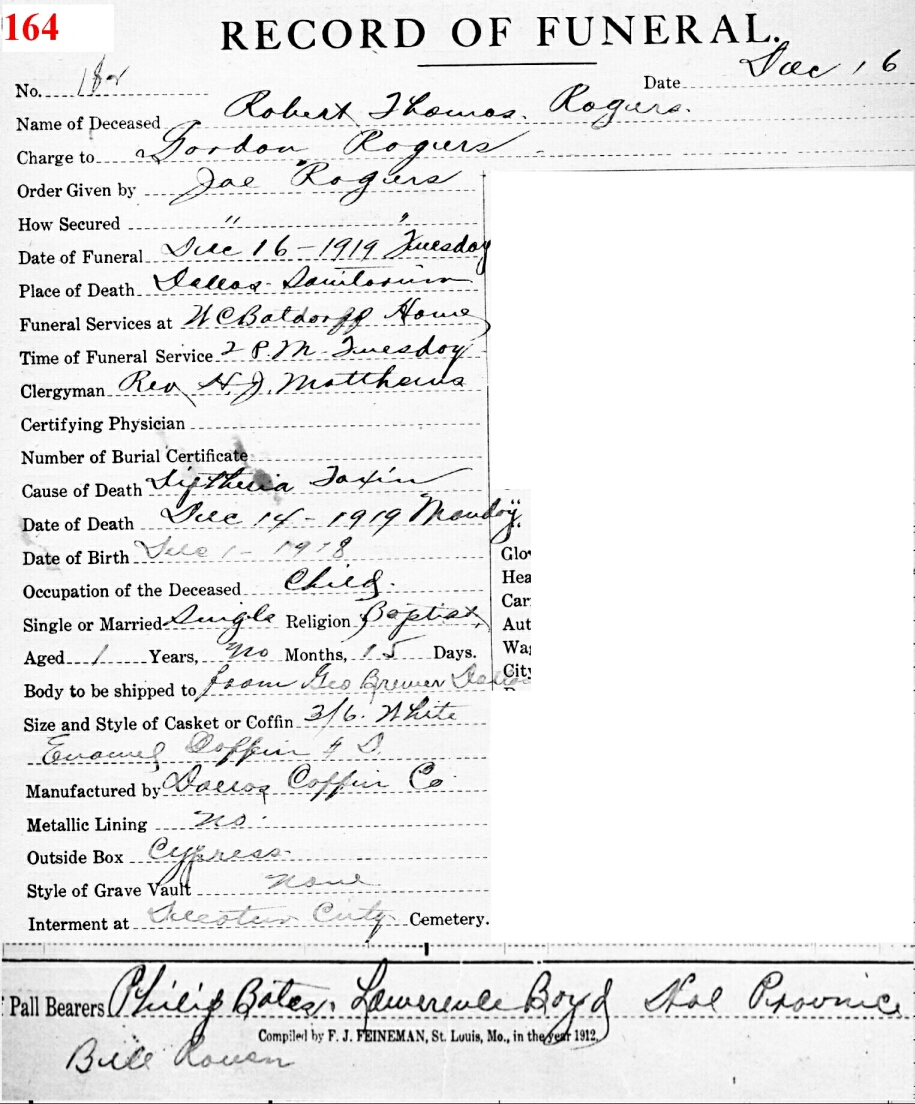 164
RECORD OF FUNERAL.
No. 182 Date Dec 16
Name of Deceased Robert Thomas Rogers.
Charge to Gordon Rogers
Order Given by Joe Rogers
How Secured " "
Date of Funeral Dec 16-1919 Tuesday
Place of Death Dallas Sanitorium
Funeral Services at W C Batdorff Home
Time of Funeral Service 2 P.M. Tuesday
Clergyman Rev H. J. Matthews
Certifying Physician
Number of Burial Certificate
Cause of Death Diptheria Toxin
Date of Death Dec 14-1919 Monday
Date of Birth Dec 1-1918
Glo
Occupation of the Deceased Child.
Hea
Car
Single or Married Single Religion Baptist
Aut
Aged 1 Years, no Months, 15 Days.
Wa
City
Body to be shipped to from Geo Brewer Dallas
Size and Style of Casket or Coffin 3/6. White
Enamel Coffin
Manufactured by Dallas Coffin Co
Metallic Lining no.
Outside Box Cypress
Style of Grave Vault none
Interment at City Cemetery.
Pall Bearers Philip Bates. Lawerence Boyd Hal Provnice
Compiled by F. J. FEINEMAN, St. Louis, Mo., in the year 1912.
Bill